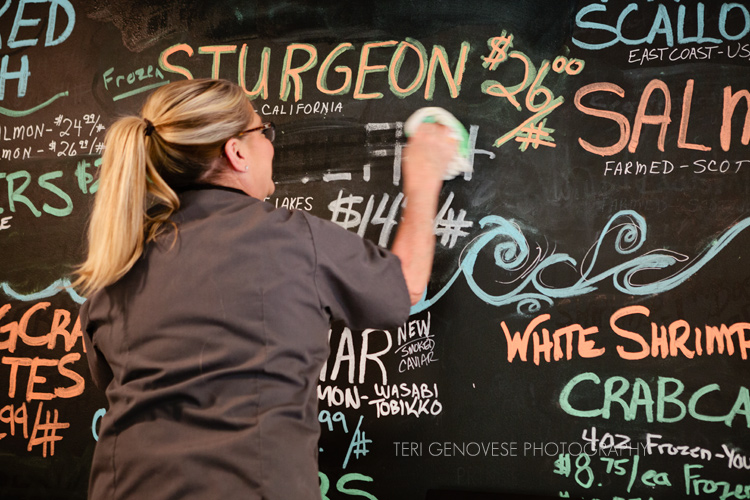 KED
SCALLO
EAST COAST-US
H
Frozen STURGEON $26.00/#
CALIFORNIA
SALM
FARMED-SCOT
LMON-$24.99/#
LMON-$26.99/#
ERS
LAKES
$14
/#
NEW
SMOKED
CAVIAR
MON-WASABI
TOBIKKO
WHITE SHRIMP
CRABCA
4oz Frozen-You
$8.75/ea Frozen
TES
99/#
99/#
TERI GENOVESE PHOTOGRAPHY